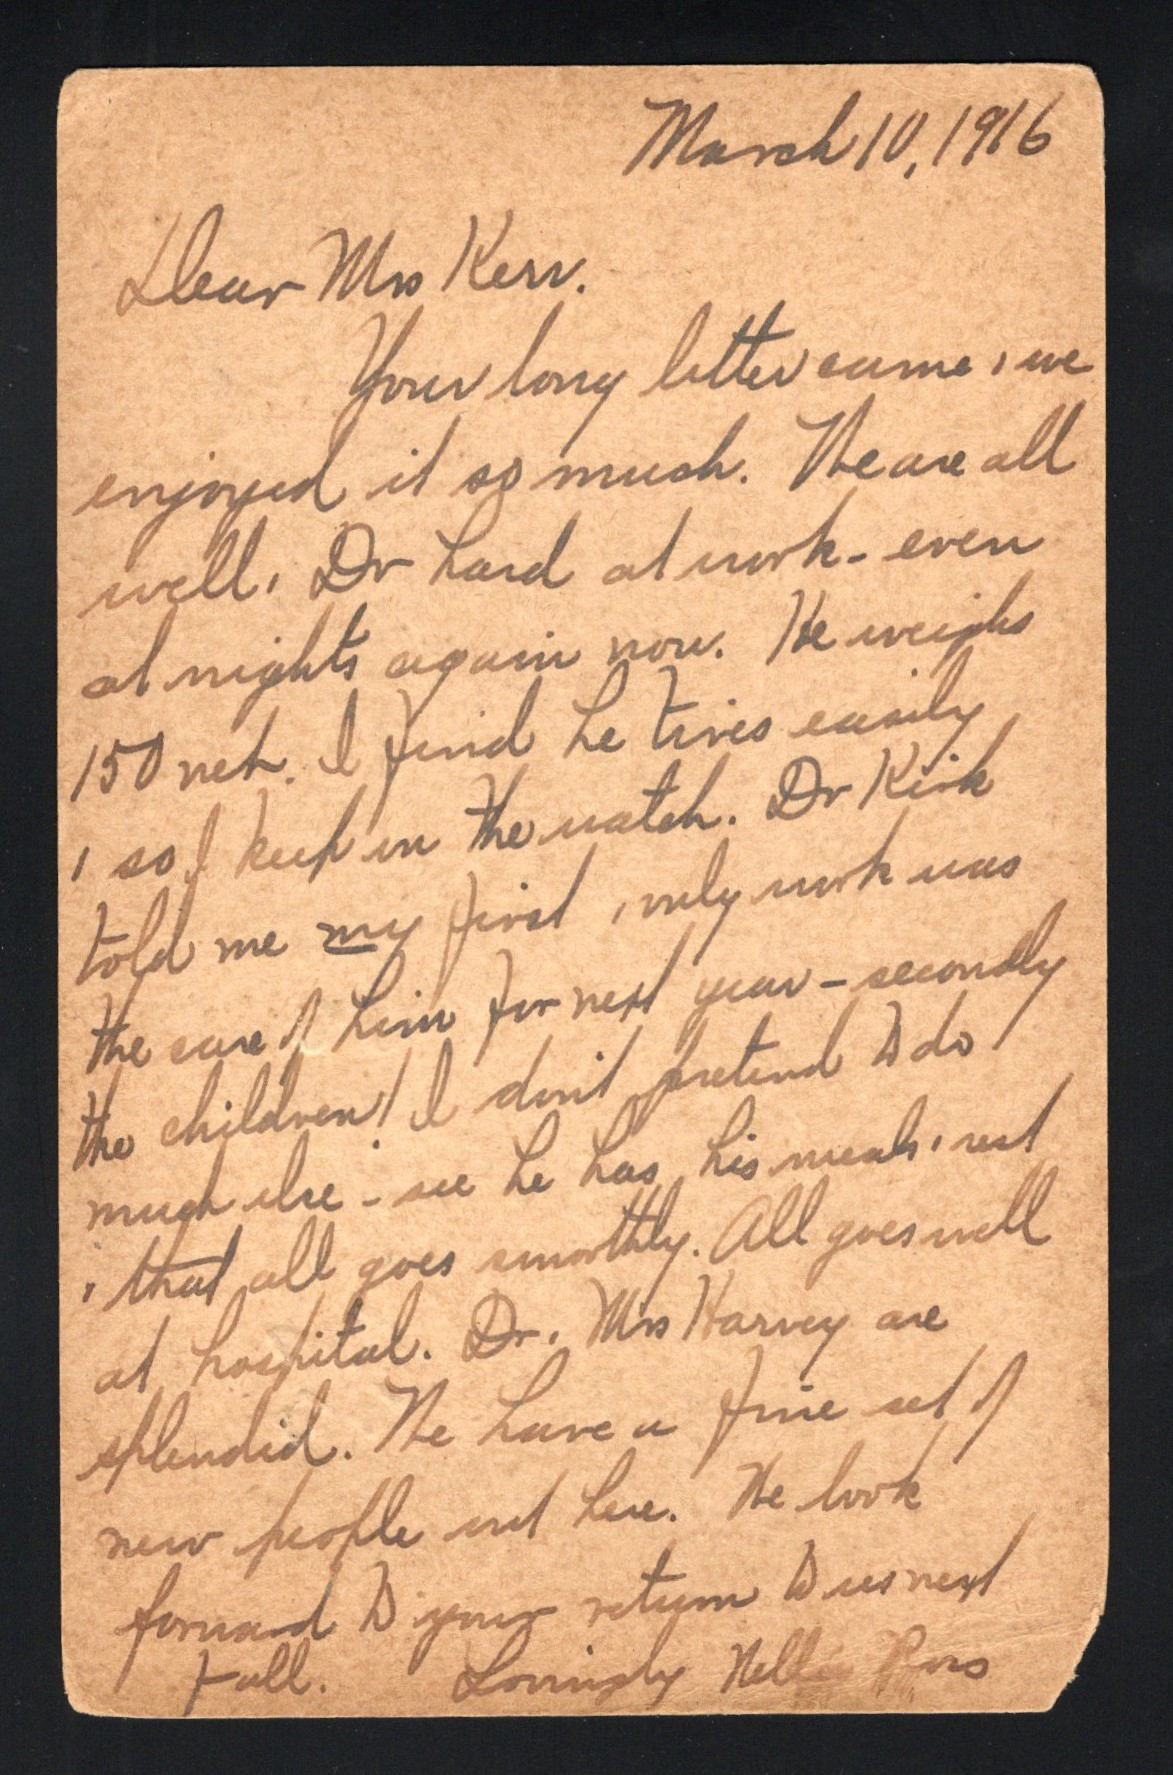 March 10, 1916
Dear Mrs Kerr.
Your long letter came, we
enjoyed it so much. We are all
well, Dr hard at work - even
at nights again now. He weighs
150 net. I find he tires easily
, so I keep on the watch. Dr Kirk
told me my first , only work was
the care of him for next year - secondly
the children! I don't pretend to do
much else - see he has his meals , rest
, that all goes smoothly. All goes well
at hospital. Dr , Mrs Harvey are
splendid. We have a fine set of
new people out here. We look
forward to your return to us next
Fall. Lovingly Nell Ross